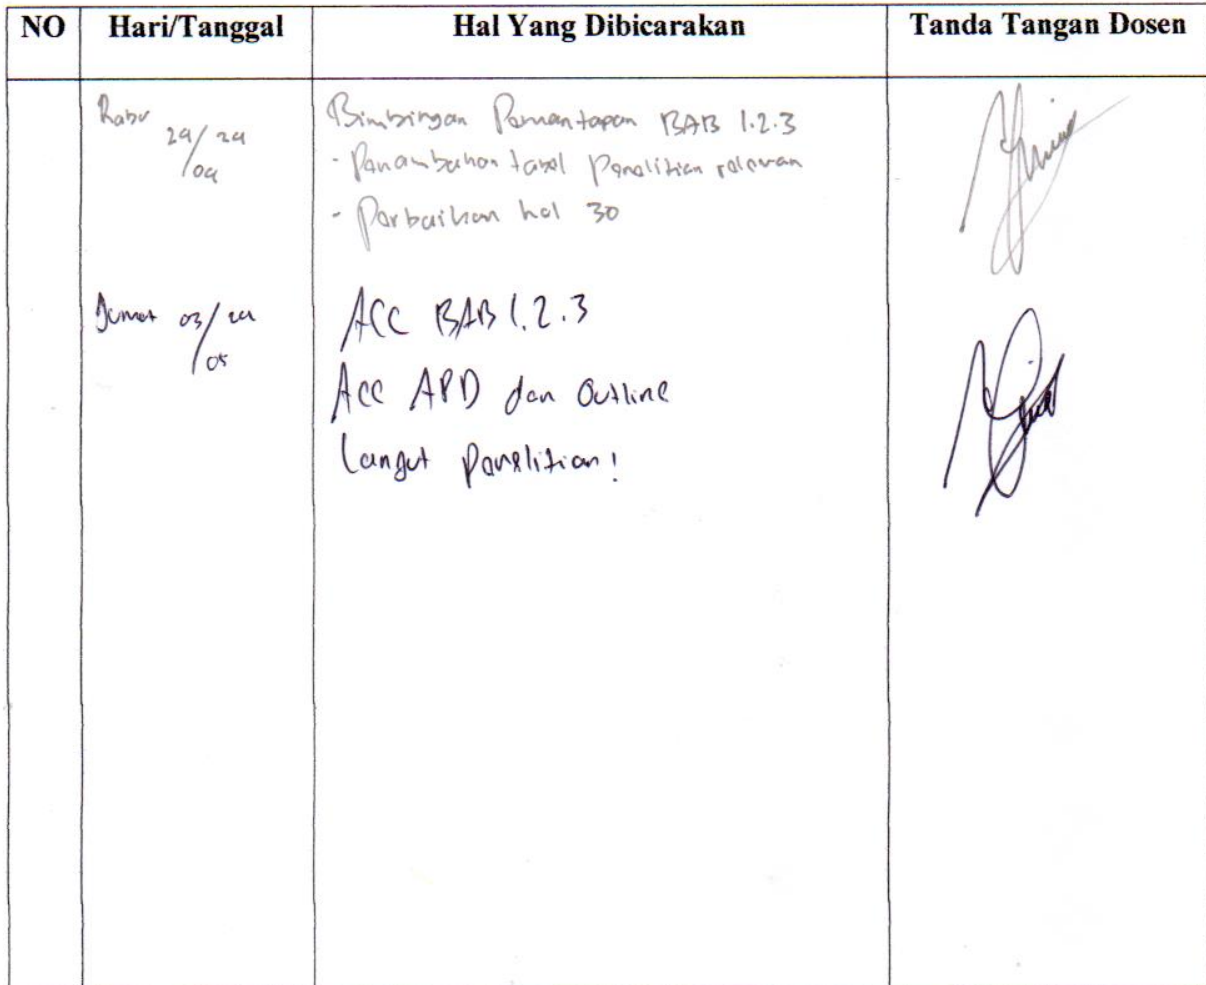 NO Hari/Tanggal Hal Yang Dibicarakan Tanda Tangan Dosen
Rabu 24/24 Bimbingan Pemantapan BAB 1.2.3
/04 - Penambahan tabel Penelitian relevan
- Perbaikan hal 30
Jumat 03/24 ACC BAB 1.2.3
/05
Acc APD dan Outline
Lanjut Penelitian!